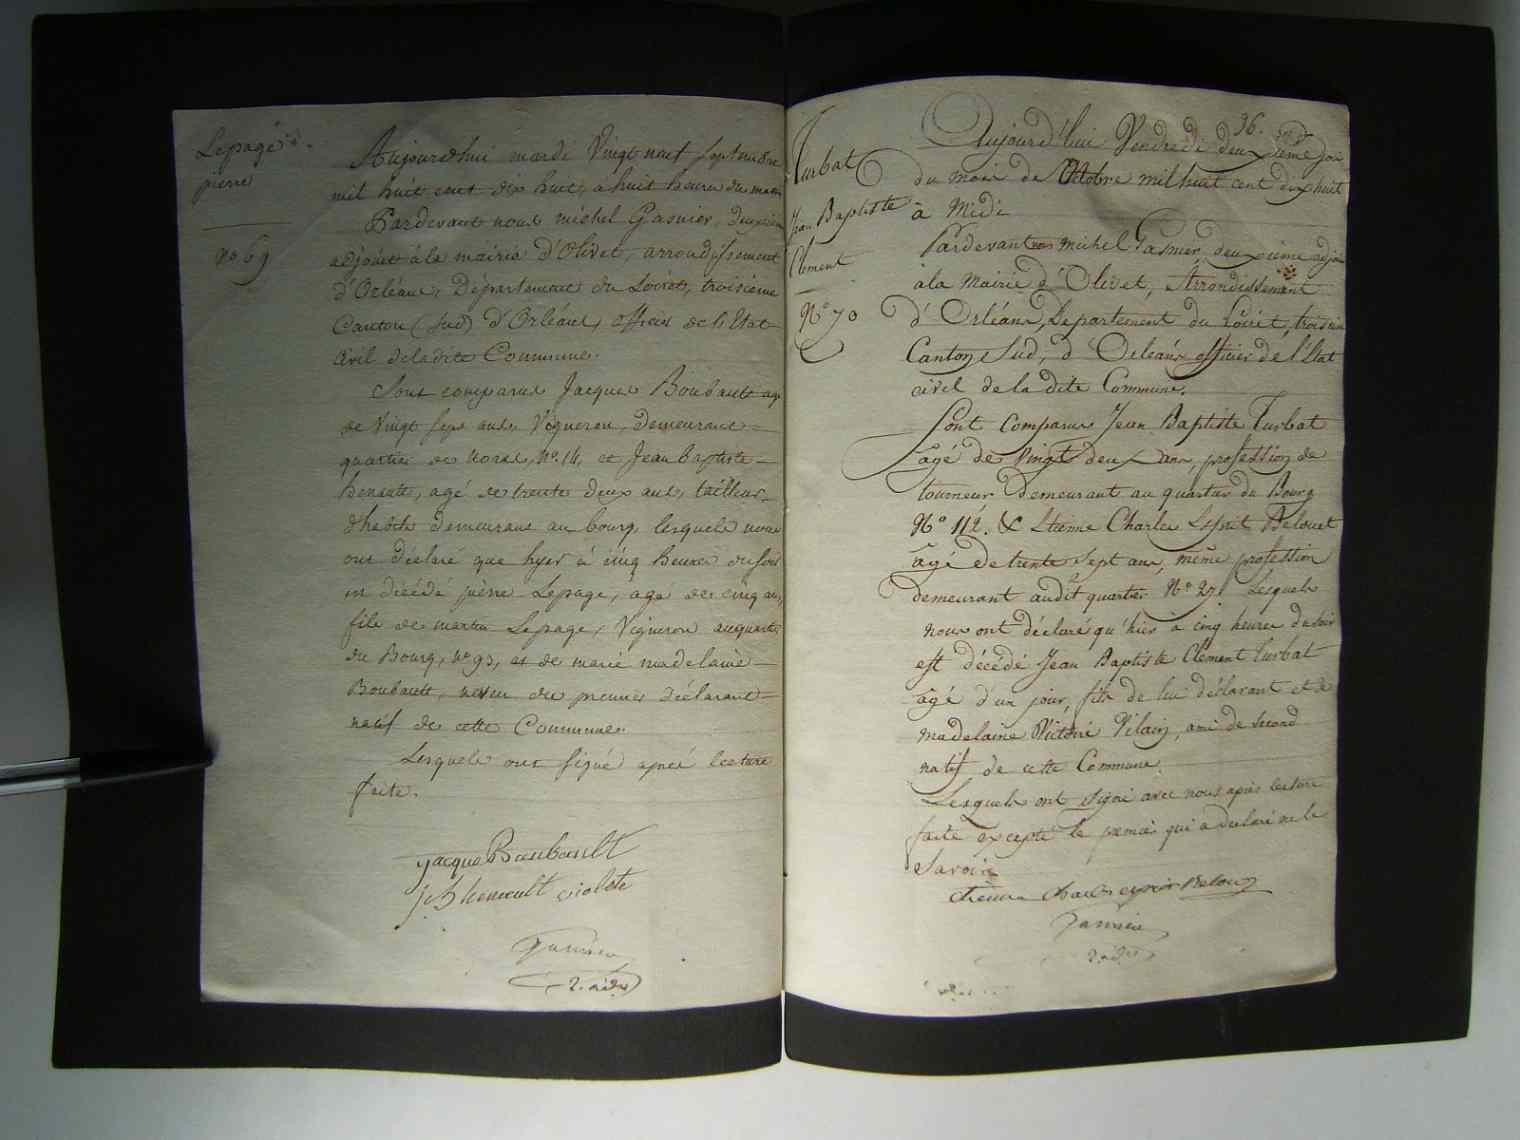 Lepage
pierre
No 69
Aujourd'hui mardi Vingt neuf Septembre
mil huit cent dix huit, a huit heures du matin
Pardevant nous michel Gasnier, deuxieme
adjoint à la mairie d'Olivet, arrondissement
d'Orléans, Département du Loiret, troisieme
Canton (sud) d'Orléans, officier de l'Etat
civil de ladite Commune.
Sont comparus Jacques Boubault agé
de Vingt sept ans, Vigneron, demeurant
quartier de No. 14, et Jean baptiste
henault, agé de trente deux ans, tailleur
d'habits demeurant au bourg, lesquels nous
ont déclaré que hyer à cinq heures du soir
est décédé pierre Lepage, agé de cinq ans,
fils de martin Lepage, Vigneron au quartier
du Bourg, no 93, et de marie madelaine
Boubault, neveu du premier déclarant
natif de cette Commune.
Lesquels ont signé après lecture
faite.
jacque Boubault
j b henault violete
Gasnier
2. adj
36.
Turbat
Jean Baptiste
Clement
No 70
Aujourd'hui Vendredi deuxieme jour
du mois de Octobre mil huit cent dix huit
à Midi
Pardevant nous Michel Gasnier, deuxième adjoint
à la Mairie d'Olivet, Arrondissement
d'Orléans, Département du Loiret, troisieme
Canton Sud, d'Orleans officier de l'Etat
civil de la dite Commune.
Sont Comparus Jean Baptiste Turbat
agé de Vingt deux ans, profession de
tourneur demeurant au quartier du Bourg
No 112. & Etienne Charles Esprit Belouet
agé de trente sept ans, même profession
demeurant audit quartier No 27 Lesquels
nous ont déclaré qu'hier à cinq heures du soir
est décédé Jean Baptiste Clement Turbat
agé d'un jour, fils de lui déclarant et de
madelaine Victoire Vilain, ami de second
natif de cette Commune
Lesquels ont signé avec nous après lecture
faite excepté le premier qui a declaré ne le
Savoir
etienne Charles esprit Belouet
Gasnier
2. adj